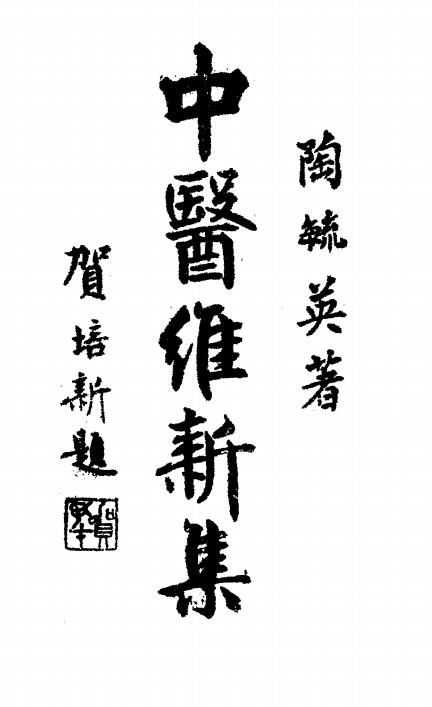 陶毓英著
中醫維新集
賀培新題